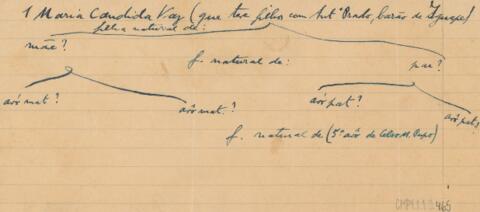 1 Maria Candida Vaz (que teve filhos com Antº Prado, barão de Iguape)
filha natural de:
mãe? pai?
f. natural de:
avó mat? avô mat.? avó pat? avô pat?
f. natural de (5º avô de Celso M. Pupo)
CMP1.1.1.2.465